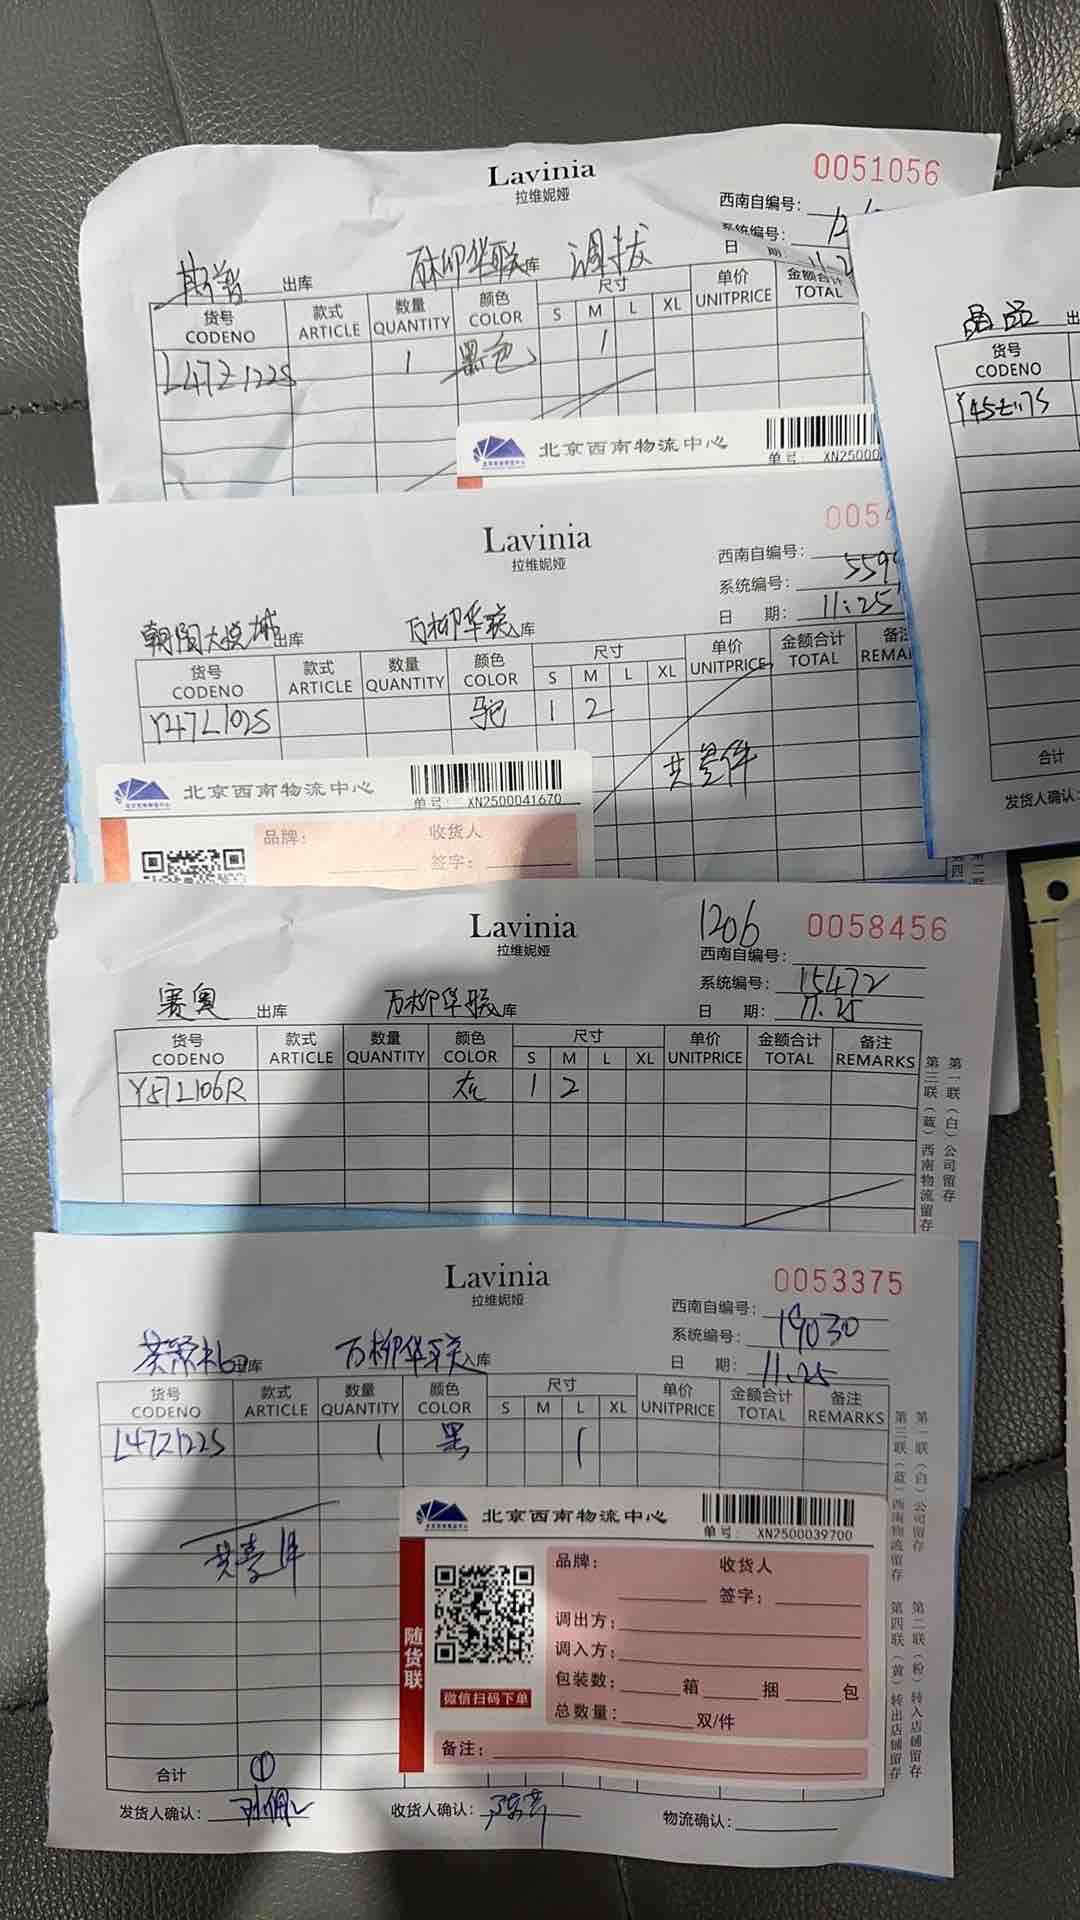 Lavinia
拉维妮娅
0051056
西南自编号:
系统编号:
日 期:
出库 万柳华联 库 调拔
货号 款式 数量 颜色 尺寸 单价 金额合计
CODENO ARTICLE QUANTITY COLOR S M L XL UNITPRICE TOTAL
L47Z122S 1 黑色 1
北京西南物流中心
单号: XN25000
晶品 出
货号
CODENO
合计
发货人确认:
Lavinia
拉维妮娅
005
西南自编号:
系统编号: 559
日 期: 11.25
朝阳大悦城 出库 万柳华联 入库
货号 款式 数量 颜色 尺寸 单价 金额合计 备注
CODENO ARTICLE QUANTITY COLOR S M L XL UNITPRICE TOTAL REMA
Y47L102S 驼 1 2
共叁件
北京西南物流中心
单号: XN2500041670
品牌: 收货人
签字:
Lavinia
拉维妮娅
1206
0058456
西南自编号:
系统编号: 15472
日 期: 11.25
赛奥 出库 万柳华联 库
货号 款式 数量 颜色 尺寸 单价 金额合计 备注
CODENO ARTICLE QUANTITY COLOR S M L XL UNITPRICE TOTAL REMARKS
Y57L106R 1 2
第一联(白)公司留存
第三联(蓝)西南物流留存
Lavinia
拉维妮娅
0053375
西南自编号:
系统编号: 19030
日 期: 11.25
出库 万柳华联 入库
货号 款式 数量 颜色 尺寸 单价 金额合计 备注
CODENO ARTICLE QUANTITY COLOR S M L XL UNITPRICE TOTAL REMARKS
L47Z122S 1 黑 1
共壹件
北京西南物流中心
单号: XN2500039700
品牌: 收货人
签字:
调出方:
调入方:
包装数: 箱 捆 包
总数量: 双/件
备注:
随货联
微信扫码下单
合计 ①
发货人确认: 收货人确认: 物流确认:
第一联(白)公司留存
第三联(蓝)西南物流留存
第二联(粉)转入店铺留存
第四联(黄)转出店铺留存